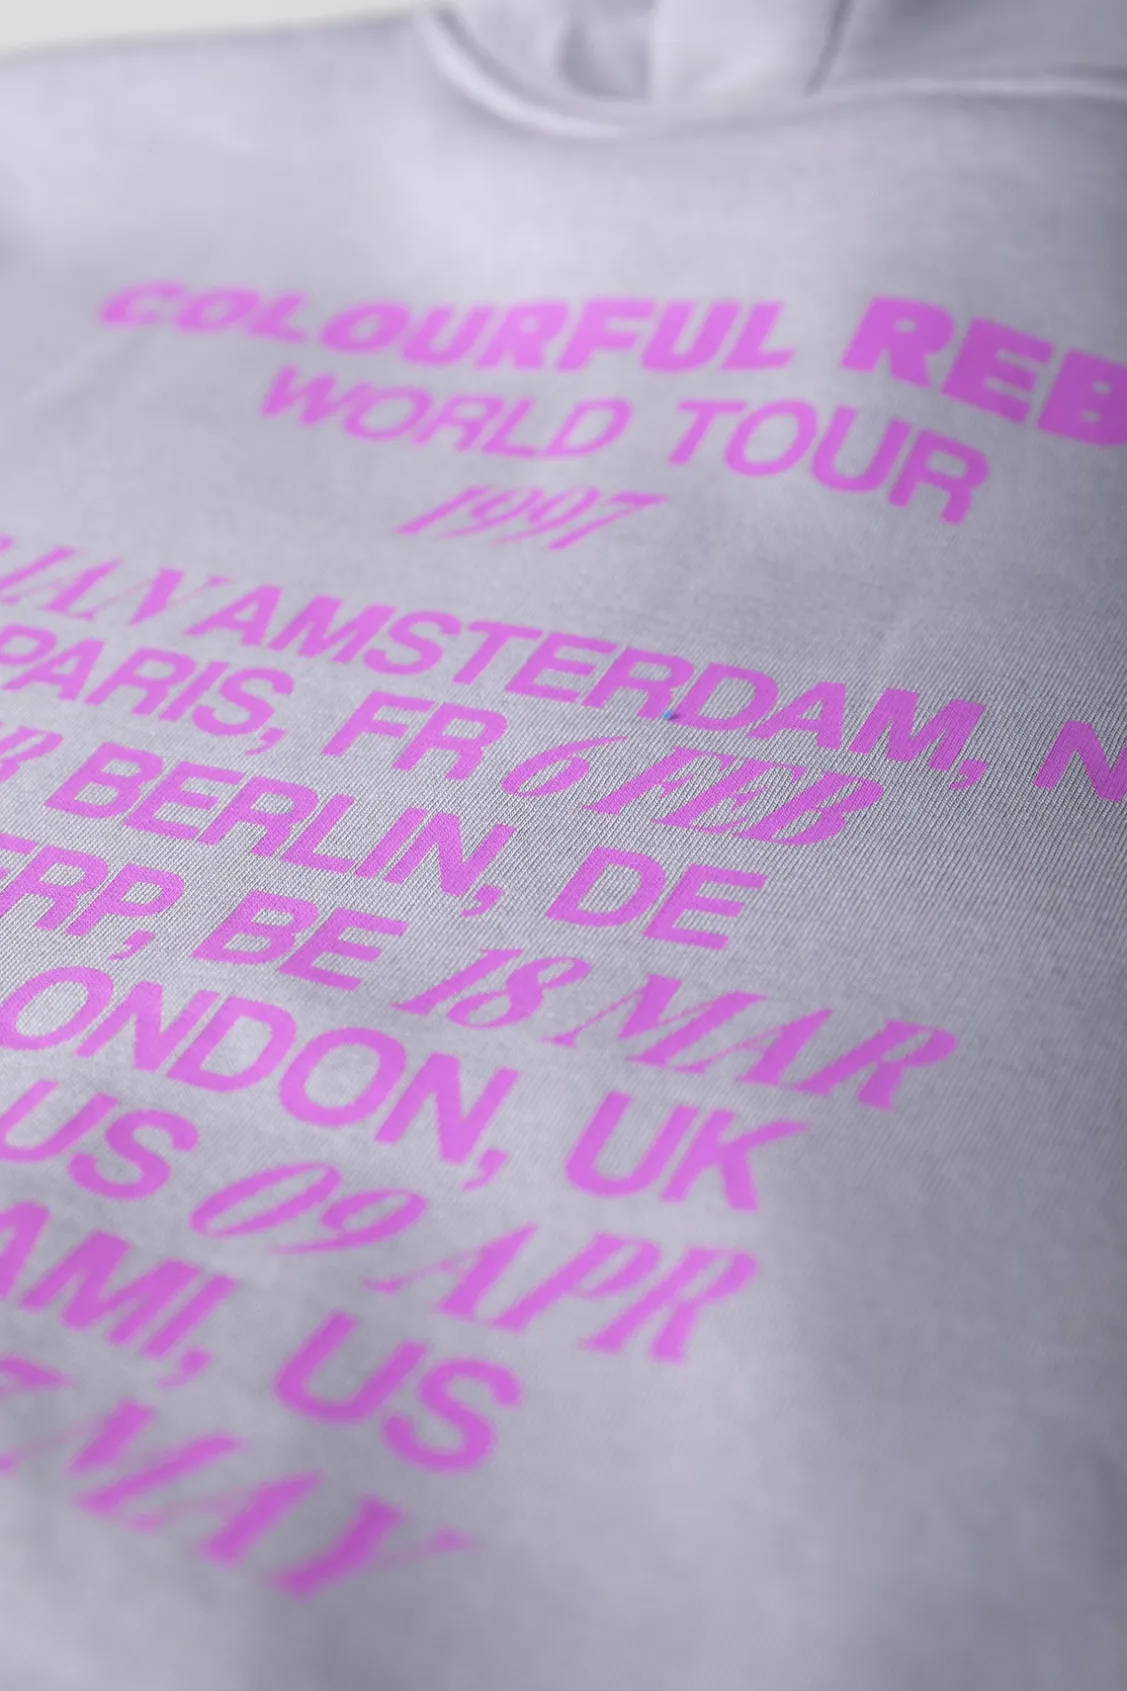 COLOURFUL REB
WORLD TOUR
1997
JAN AMSTERDAM, N
PARIS, FR 6 FEB
BERLIN, DE
ERP, BE 18 MAR
ONDON, UK
US 09 APR
AMI, US
MAY